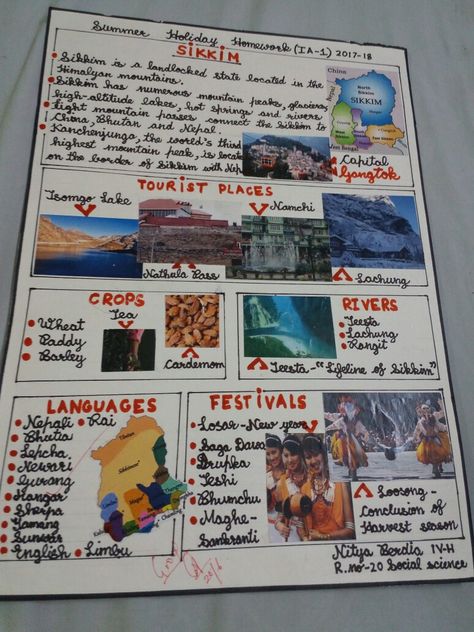 Summer Holiday Homework (IA-1) 2017-18
SIKKIM
Sikkim is a landlocked state located in the
Himalyan mountains.
Sikkim has numerous mountain peaks, glaciers
high-altitude lakes, hot springs and rivers
Eight mountain passes connect the Sikkim to
China, Bhutan and Nepal.
Kanchenjunga, the world's third
highest mountain peak, is locat
on the border of Sikkim with Nep
China
Nepal
North
Sikkim
SIKKIM
West Bengal
Capital
Gangtok
TOURIST PLACES
Tsomgo Lake
Namchi
Nathula Pass
Lachung
CROPS
Tea
Wheat
Paddy
Barley
Cardemom
RIVERS
Teesta
Lachung
Rangit
Teesta-"Lifeline of Sikkim"
LANGUAGES
Nepali
Rai
Bhutia
Lepcha
Newari
Gurang
Mangar
Sherpa
Tamang
Sunwar
English
Limbu
Tibetan
Sikkimese
FESTIVALS
Losar-New year
Saga Dawa
Drupka
Teshi
Bhumchu
Maghe-
Sankranti
Loosong-
Conclusion of
Harvest season
Nitya Berdia IV-H
R.no-20 Social science